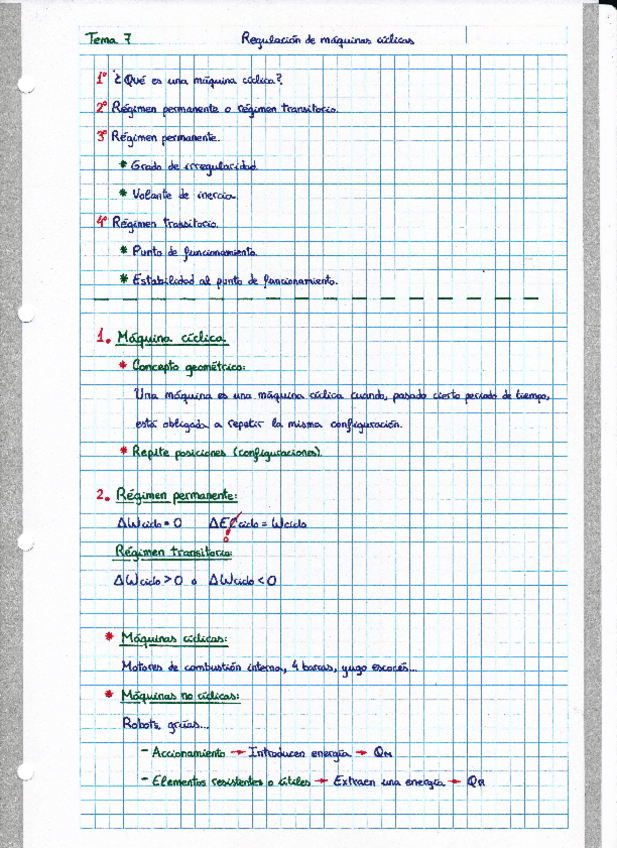 Tema 7 Regulación de máquinas cíclicas
1º ¿Qué es una máquina cíclica?
2º Régimen permanente o régimen transitorio.
3º Régimen permanente.
* Grado de irregularidad.
* Volante de inercia.
4º Régimen transitorio.
* Punto de funcionamiento.
* Estabilidad al punto de funcionamiento.
1. Máquina cíclica.
* Concepto geométrico:
Una máquina es una máquina cíclica cuando, pasado cierto periodo de tiempo,
está obligada a repetir la misma configuración.
* Repite posiciones (configuraciones).
2. Régimen permanente:
ΔWciclo = 0 ΔECciclo = Wciclo
0
Régimen transitorio:
ΔWciclo > 0 o ΔWciclo < 0
* Máquinas cíclicas:
Motores de combustión interna, 4 barras, yugo escocés...
* Máquinas no cíclicas:
Robots, grúas...
- Accionamiento → Introducen energía → QM
- Elementos resistentes o útiles → Extraen una energía → QR